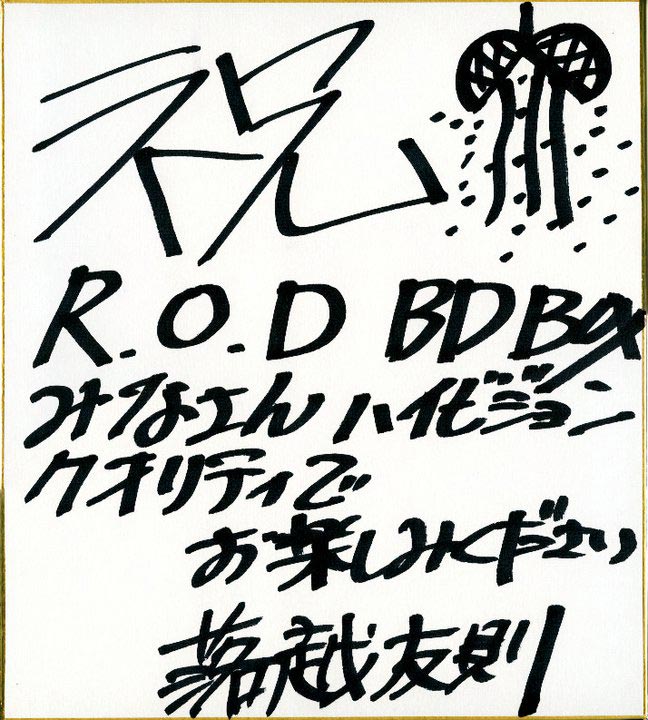 祝
R.O.D BDBox
みなさん ハイビジョン
クオリティで
お楽しみください
落越友則